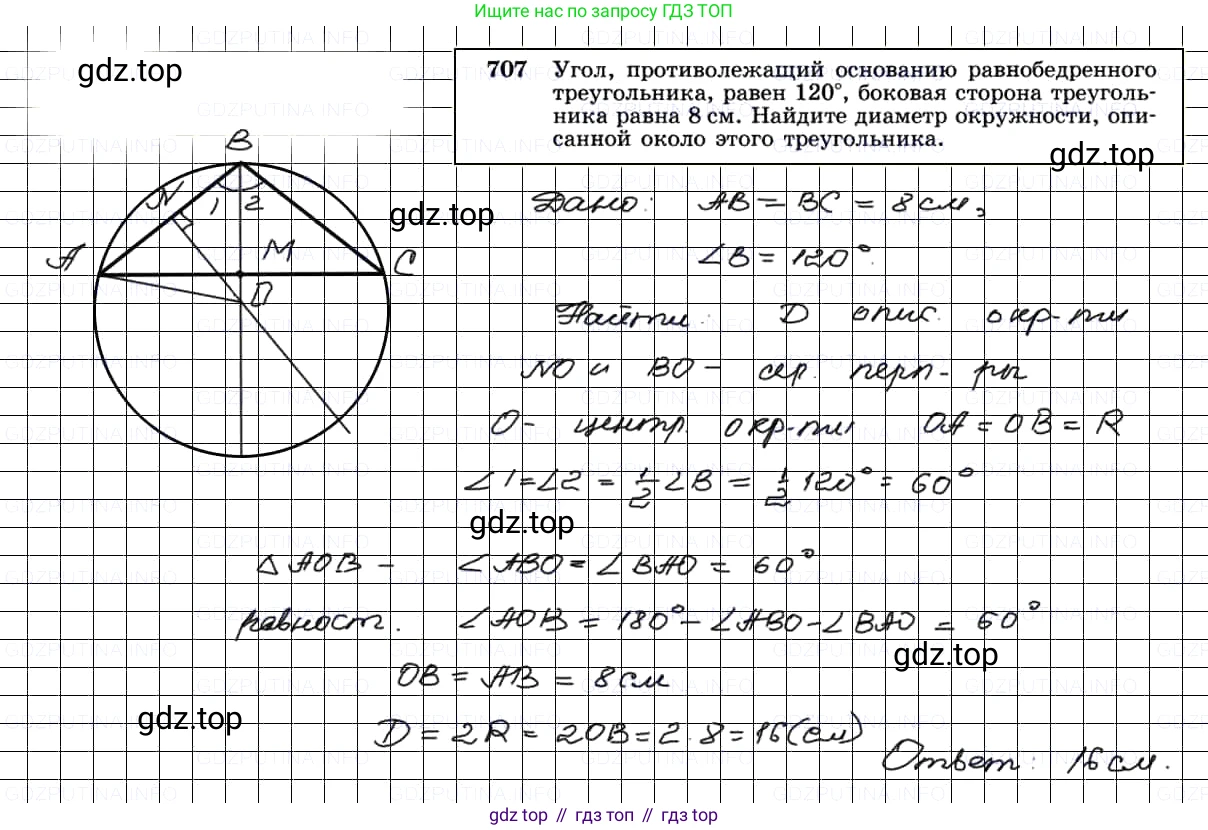 Ищите нас по запросу ГДЗ ТОП
GDZPUTINA.INFO
gdz.top
707 Угол, противолежащий основанию равнобедренного
треугольника, равен 120°, боковая сторона треуголь-
ника равна 8 см. Найдите диаметр окружности, опи-
санной около этого треугольника.
gdz.top
B
N 1 2
gdz.top
A M C
O
Дано: AB = BC = 8 см,
∠B = 120°.
Найти: D опис. окр-ти
NO и BO – сер. перп-ры
O – центр. окр-ти OA = OB = R
∠1 = ∠2 = 1/2 ∠B = 1/2 120° = 60°
gdz.top
△ AOB – ∠ABO = ∠BAO = 60°
равност. ∠AOB = 180° – ∠ABO – ∠BAO = 60°
gdz.top
OB = AB = 8 см
gdz.top
D = 2R = 2OB = 2 · 8 = 16 (см)
Ответ: 16 см.
gdz top // гдз топ // гдз top